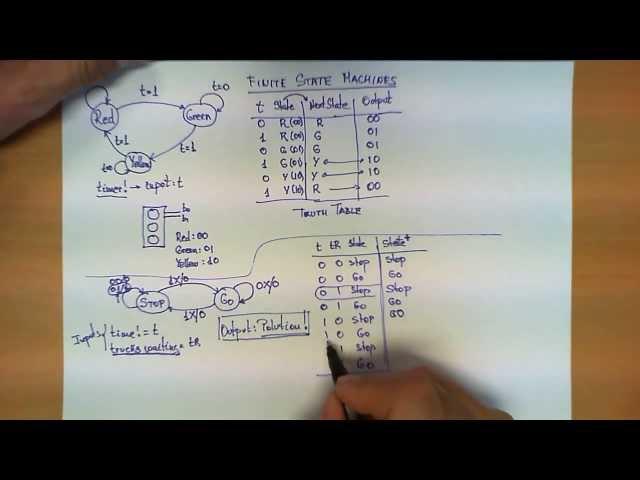 FINITE STATE MACHINES
t State Next State Output
0 R(00) R 00
1 R(00) G 01
0 G(01) G 01
1 G(01) Y 10
0 Y(10) Y 10
1 Y(10) R 00
TRUTH TABLE
t=1
t=0
Red
Green
t=1
t=1
t=0
Yellow
timer! → input: t
b0
b1
Red: 00
Green: 01
Yellow: 10
1X/0
0X/0
STOP
Go
1X/0
Output: Polution!
Inputs
time! = t
trucks waiting = tR
t tR State State+
0 0 Stop Stop
0 0 Go Go
0 1 Stop Stop
0 1 Go Go
1 0 Stop GO
1 0 Go
1 Stop
Go